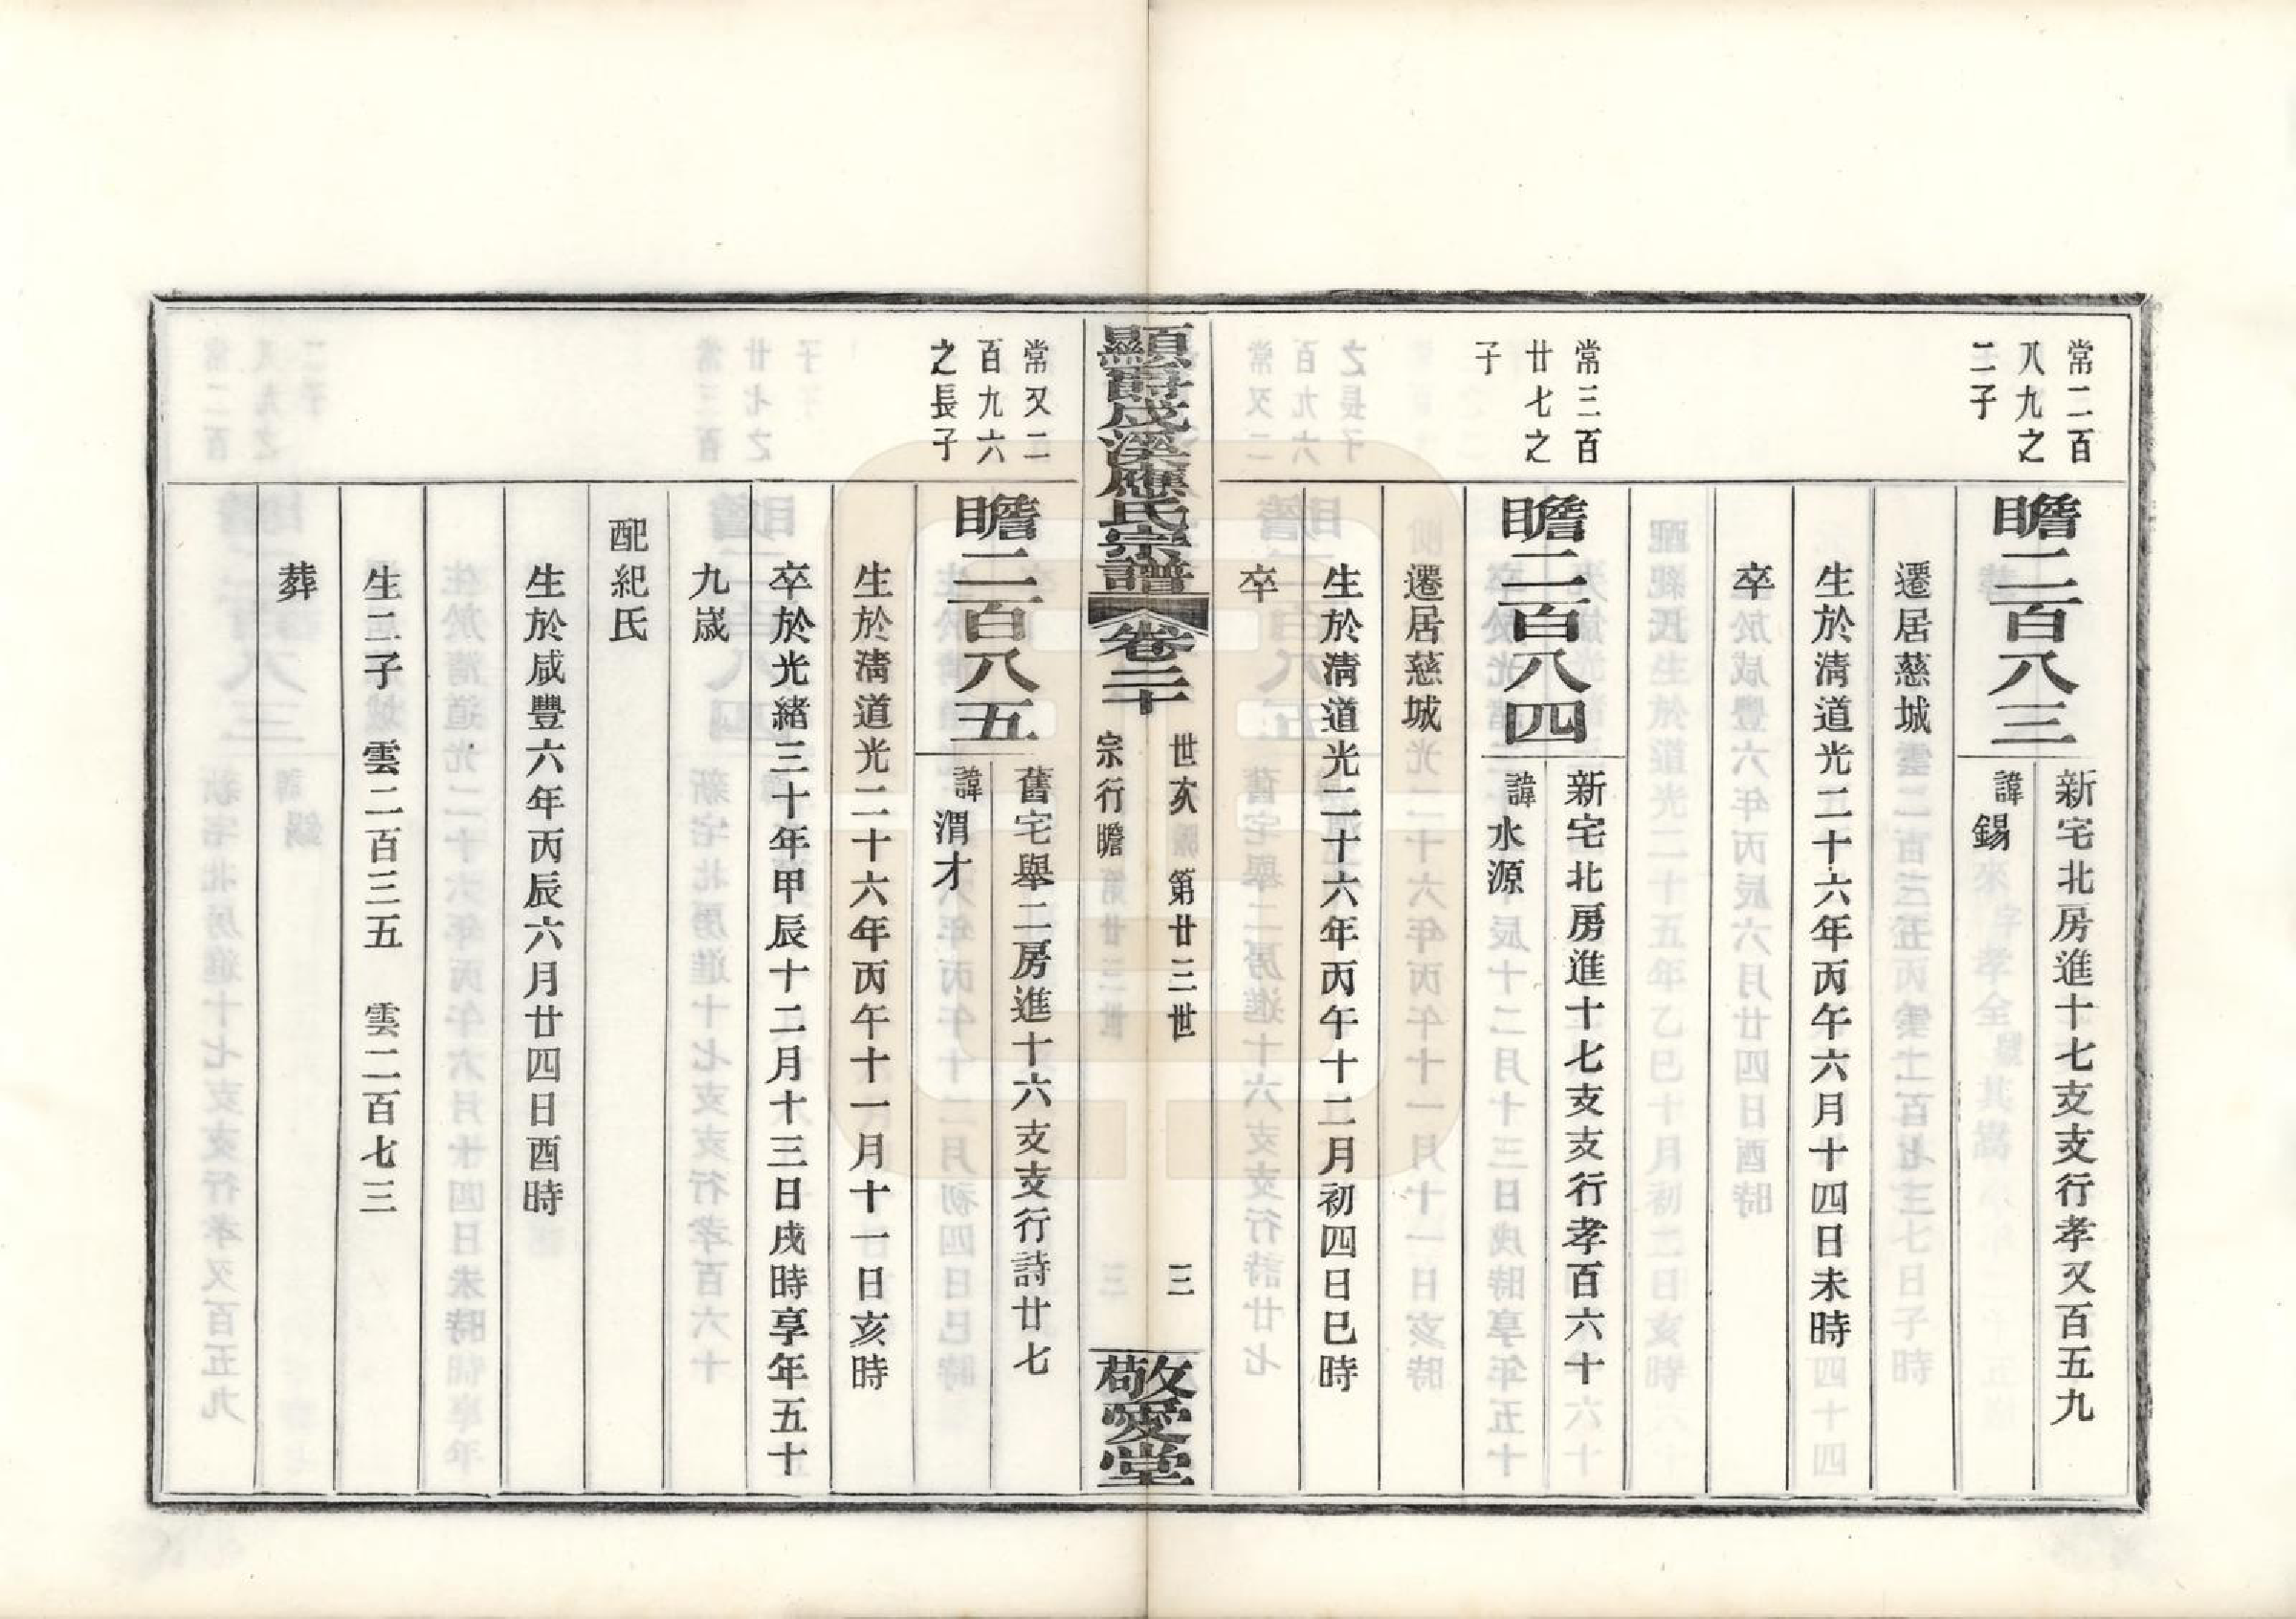 常二百
八九之
二子
瞻二百八三
新宅北房進十七支支行孝又百五九
諱錫
遷居慈城
生於清道光二十六年丙午六月十四日未時
卒
常三百
廿七之
子
瞻二百八四
新宅北房進十七支支行孝百六十
諱水源
遷居慈城
生於清道光二十六年丙午十二月初四日巳時
卒
顯爵戍溪應氏宗譜
卷二十
世次 第廿三世
宗行瞻
三
敬愛堂
常又二
百九六
之長子
瞻二百八五
舊宅舉二房進十六支支行詩廿七
諱渭才
生於清道光二十六年丙午十一月十一日亥時
卒於光緒三十年甲辰十二月十三日戌時享年五十
九歲
配紀氏
生於咸豐六年丙辰六月廿四日酉時
生二子 雲二百三五 雲二百七三
葬